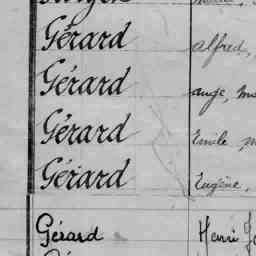 Gérard Alfred,
Gérard ange,
Gérard Emile
Gérard Eugène,
Gérard Henri